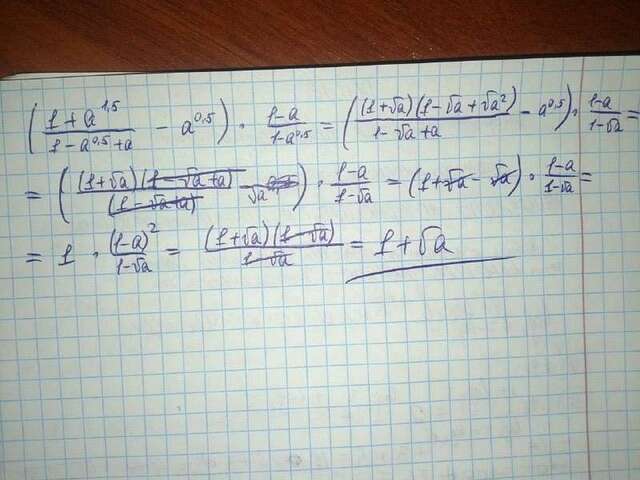 (\frac{1+a^{1,5}}{1-a^{0,5}+a} - a^{0,5}) \cdot \frac{1-a}{1-a^{0,5}} = (\frac{(1+\sqrt{a})(1-\sqrt{a}+\sqrt{a}^2)}{1-\sqrt{a}+a} - a^{0,5}) \cdot \frac{1-a}{1-\sqrt{a}} =
= (\frac{(1+\sqrt{a})(1-\sqrt{a}+a)}{(1-\sqrt{a}+a)} - \sqrt{a}) \cdot \frac{1-a}{1-\sqrt{a}} = (1+\sqrt{a}-\sqrt{a}) \cdot \frac{1-a}{1-\sqrt{a}} =
= 1 \cdot \frac{(1-a)^2}{1-\sqrt{a}} = \frac{(1+\sqrt{a})(1-\sqrt{a})}{1-\sqrt{a}} = 1+\sqrt{a}